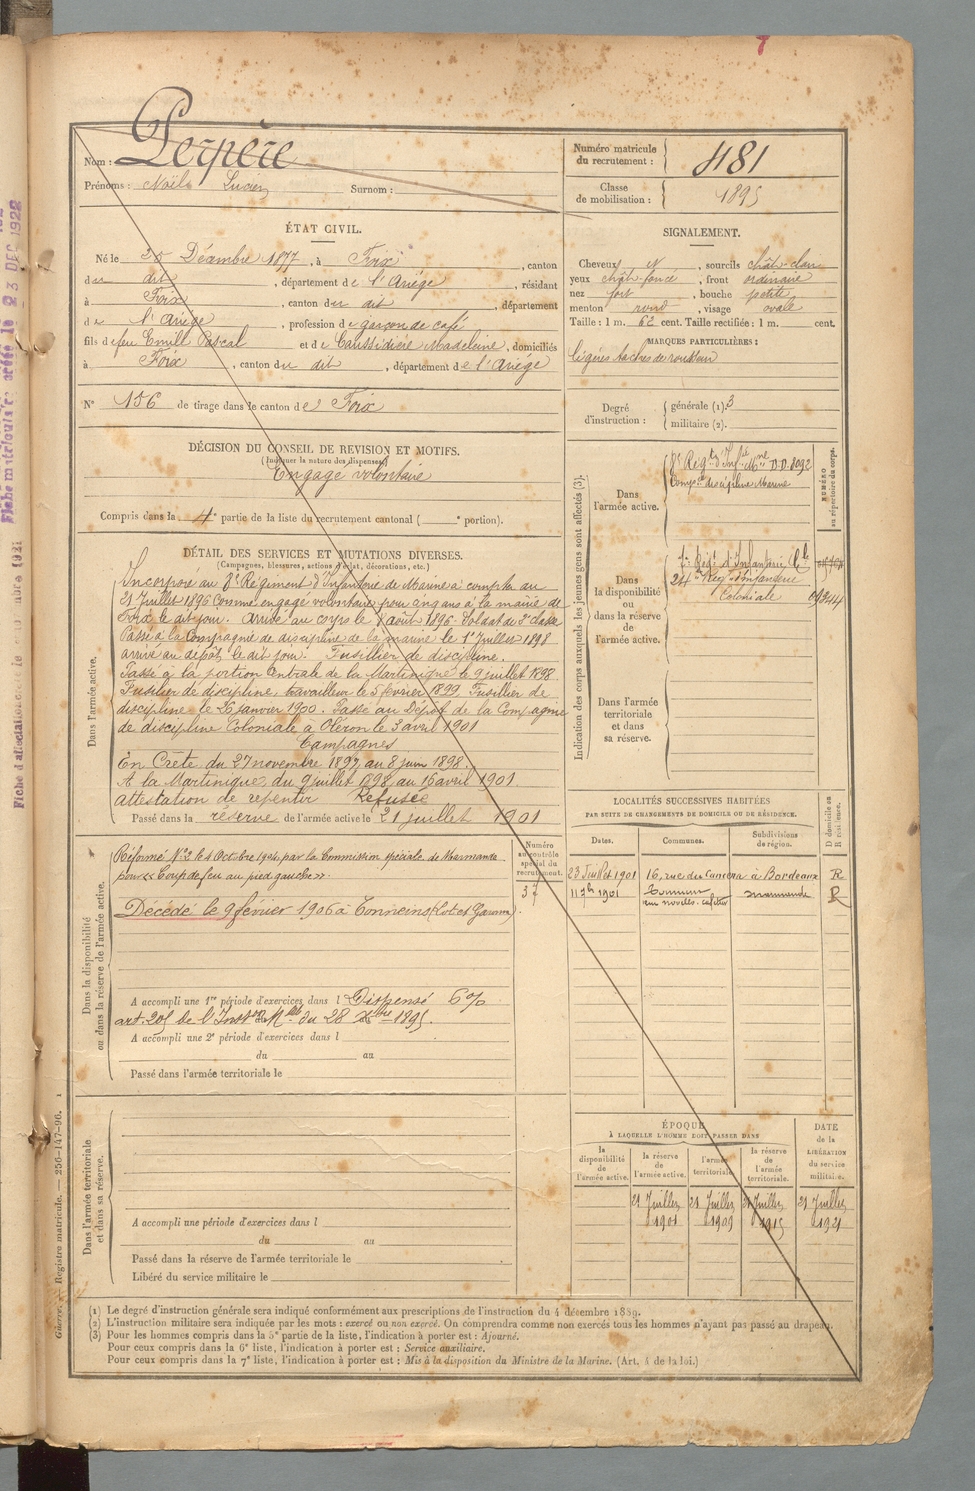 Nom : Perpère
Prénoms : Noël Lucien Surnom :
Numéro matricule du recrutement : 481
Classe de mobilisation : 1895
ÉTAT CIVIL.
Né le 25 Décembre 1877, à Foix, canton
du dit, département de l'Ariège, résidant
à Foix, canton du dit, département
de l'Ariège, profession de garçon de café
fils de feu Emill Pascal et de Caussidiére Madeleine, domiciliés
à Foix, canton du dit, département de l'Ariége
N° 156 de tirage dans le canton de Foix
SIGNALEMENT.
Cheveux N, sourcils chât-clair
yeux chât-foncé, front ordinaire
nez fort, bouche petite
menton rond, visage ovale
Taille : 1 m. 62 cent. Taille rectifiée : 1 m. cent.
MARQUES PARTICULIÈRES :
légères taches de rousseur
Degré d'instruction : générale (1). 3
militaire (2).
DÉCISION DU CONSEIL DE REVISION ET MOTIFS.
(Indiquer la nature des dispenses)
Engagé volontaire
Compris dans la 4e partie de la liste du recrutement cantonal ( e portion).
DÉTAIL DES SERVICES ET MUTATIONS DIVERSES.
(Campagnes, blessures, actions d'éclat, décorations, etc.)
Dans l'armée active.
Incorporé au 8e Régiment d'Infanterie de Marine à compter du
21 Juillet 1896 Comme engagé volontaire pour cinq ans à la mairie de
Foix le dit jour. Arrivé au corps le août 1896. Soldat de 2e classe
Passé à la Compagnie de discipline de la marine le 1er Juillet 1898
arrivé au dépôt le dit jour. Fusillier de discipline.
Passé à la portion Centrale de la Martinique le 9 juillet 1898
Fusilier de discipline, travailleur le 5 février 1899. Fusillier de
discipline le 26 Janvier 1900. Passé au Dépôt de la Compagnie
de discipline Coloniale à Oléron le 3 avril 1901
Campagnes
En Crète du 27 novembre 1897 au 8 juin 1898.
A la Martinique, du 9 juillet 1898 au 16 avril 1901
attestation de repentir Refusée
Passé dans la réserve de l'armée active le 21 juillet 1901
Indication des corps auxquels les jeunes gens sont affectés (3).
Dans l'armée active.
8e Régt d'Infie Mne D.D. 8092
Compie discipline Marine
NUMÉRO au répertoire du corps.
Dans la disponibilité ou dans la réserve de l'armée active.
7e Régt d'Infanterie Cle
24e Régt d'Infanterie
Coloniale
Dans l'armée territoriale et dans sa réserve.
LOCALITÉS SUCCESSIVES HABITÉES
PAR SUITE DE CHANGEMENTS DE DOMICILE OU DE RÉSIDENCE.
Dates. Communes. Subdivisions de région. D domicile ou R résidence.
23 Juillet 1901 16, rue du Cancera à Bordeaux R
1901 Tonneins Marmande R
Dans la disponibilité ou dans la réserve de l'armée active.
Numéro au contrôle spécial du recrutement.
37
Réformé N°2 le 4 Octobre 1904, par la Commission spéciale de Marmande
pour « Coup de feu au pied gauche ».
Décédé le 9 février 1906 à Tonneins (Lot et Garonne).
A accompli une 1re période d'exercices dans l Dispensé
art. 205 de l'Inston Mlle du 28 Xbre 1895.
A accompli une 2e période d'exercices dans l
du au
Passé dans l'armée territoriale le
Dans l'armée territoriale et dans sa réserve.
A accompli une période d'exercices dans l
du au
Passé dans la réserve de l'armée territoriale le
Libéré du service militaire le
ÉPOQUE
À LAQUELLE L'HOMME DOIT PASSER DANS
la disponibilité de l'armée active.
la réserve de l'armée active.
l'armée territoriale.
la réserve de l'armée territoriale.
DATE de la LIBÉRATION du service militaire.
21 Juillet 1901
21 Juillet 1909
21 Juillet 1915
21 Juillet 1921
(1) Le degré d'instruction générale sera indiqué conformément aux prescriptions de l'instruction du 4 décembre 1889.
(2) L'instruction militaire sera indiquée par les mots : exercé ou non exercé. On comprendra comme non exercés tous les hommes n'ayant pas passé au drapeau.
(3) Pour les hommes compris dans la 5e partie de la liste, l'indication à porter est : Ajourné.
Pour ceux compris dans la 6e liste, l'indication à porter est : Service auxiliaire.
Pour ceux compris dans la 7e liste, l'indication à porter est : Mis à la disposition du Ministre de la Marine. (Art. 4 de la loi.)
Guerre. — Registre matricule. — 256-147-96. 1